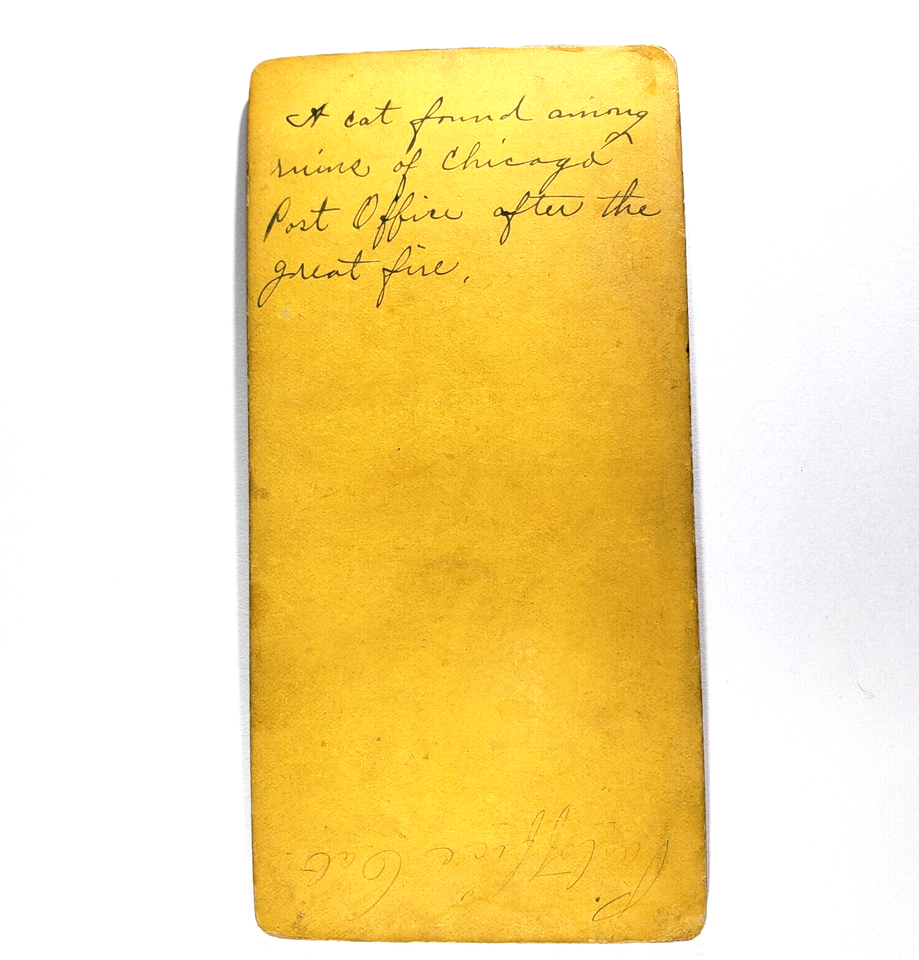 A cat found among
ruins of Chicago
Post Office after the
great fire.
Post Office Cat